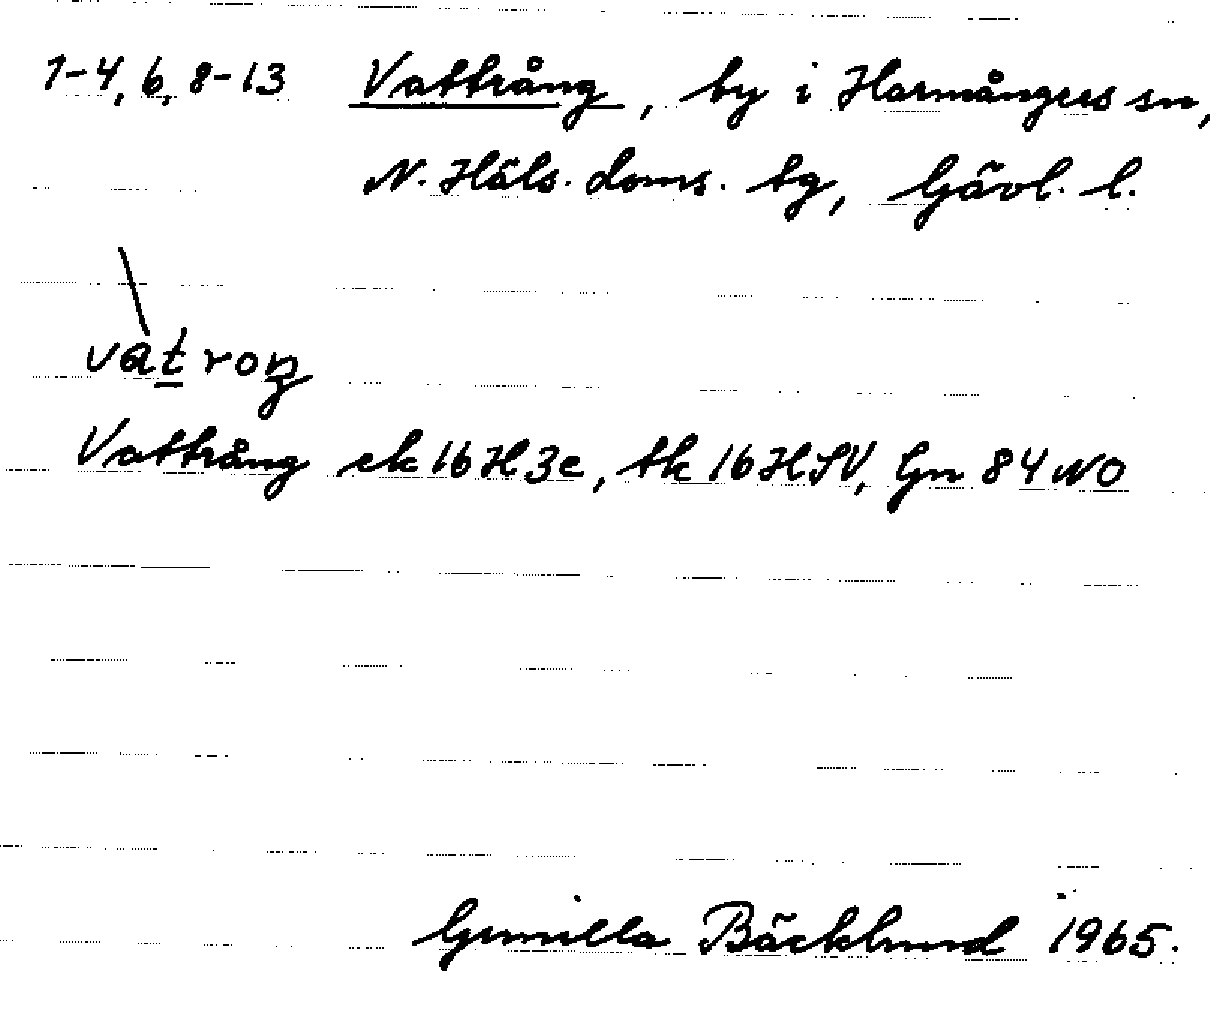 1-4, 6, 8-13 Vattrång, by i Harmångers sn,
N. Häls. doms. tg, Gävl. l.
vatroŋ
Vattrång ek 16H3c, tk 16HSV, Gn 84 NO
Gunilla Bäcklund 1965.